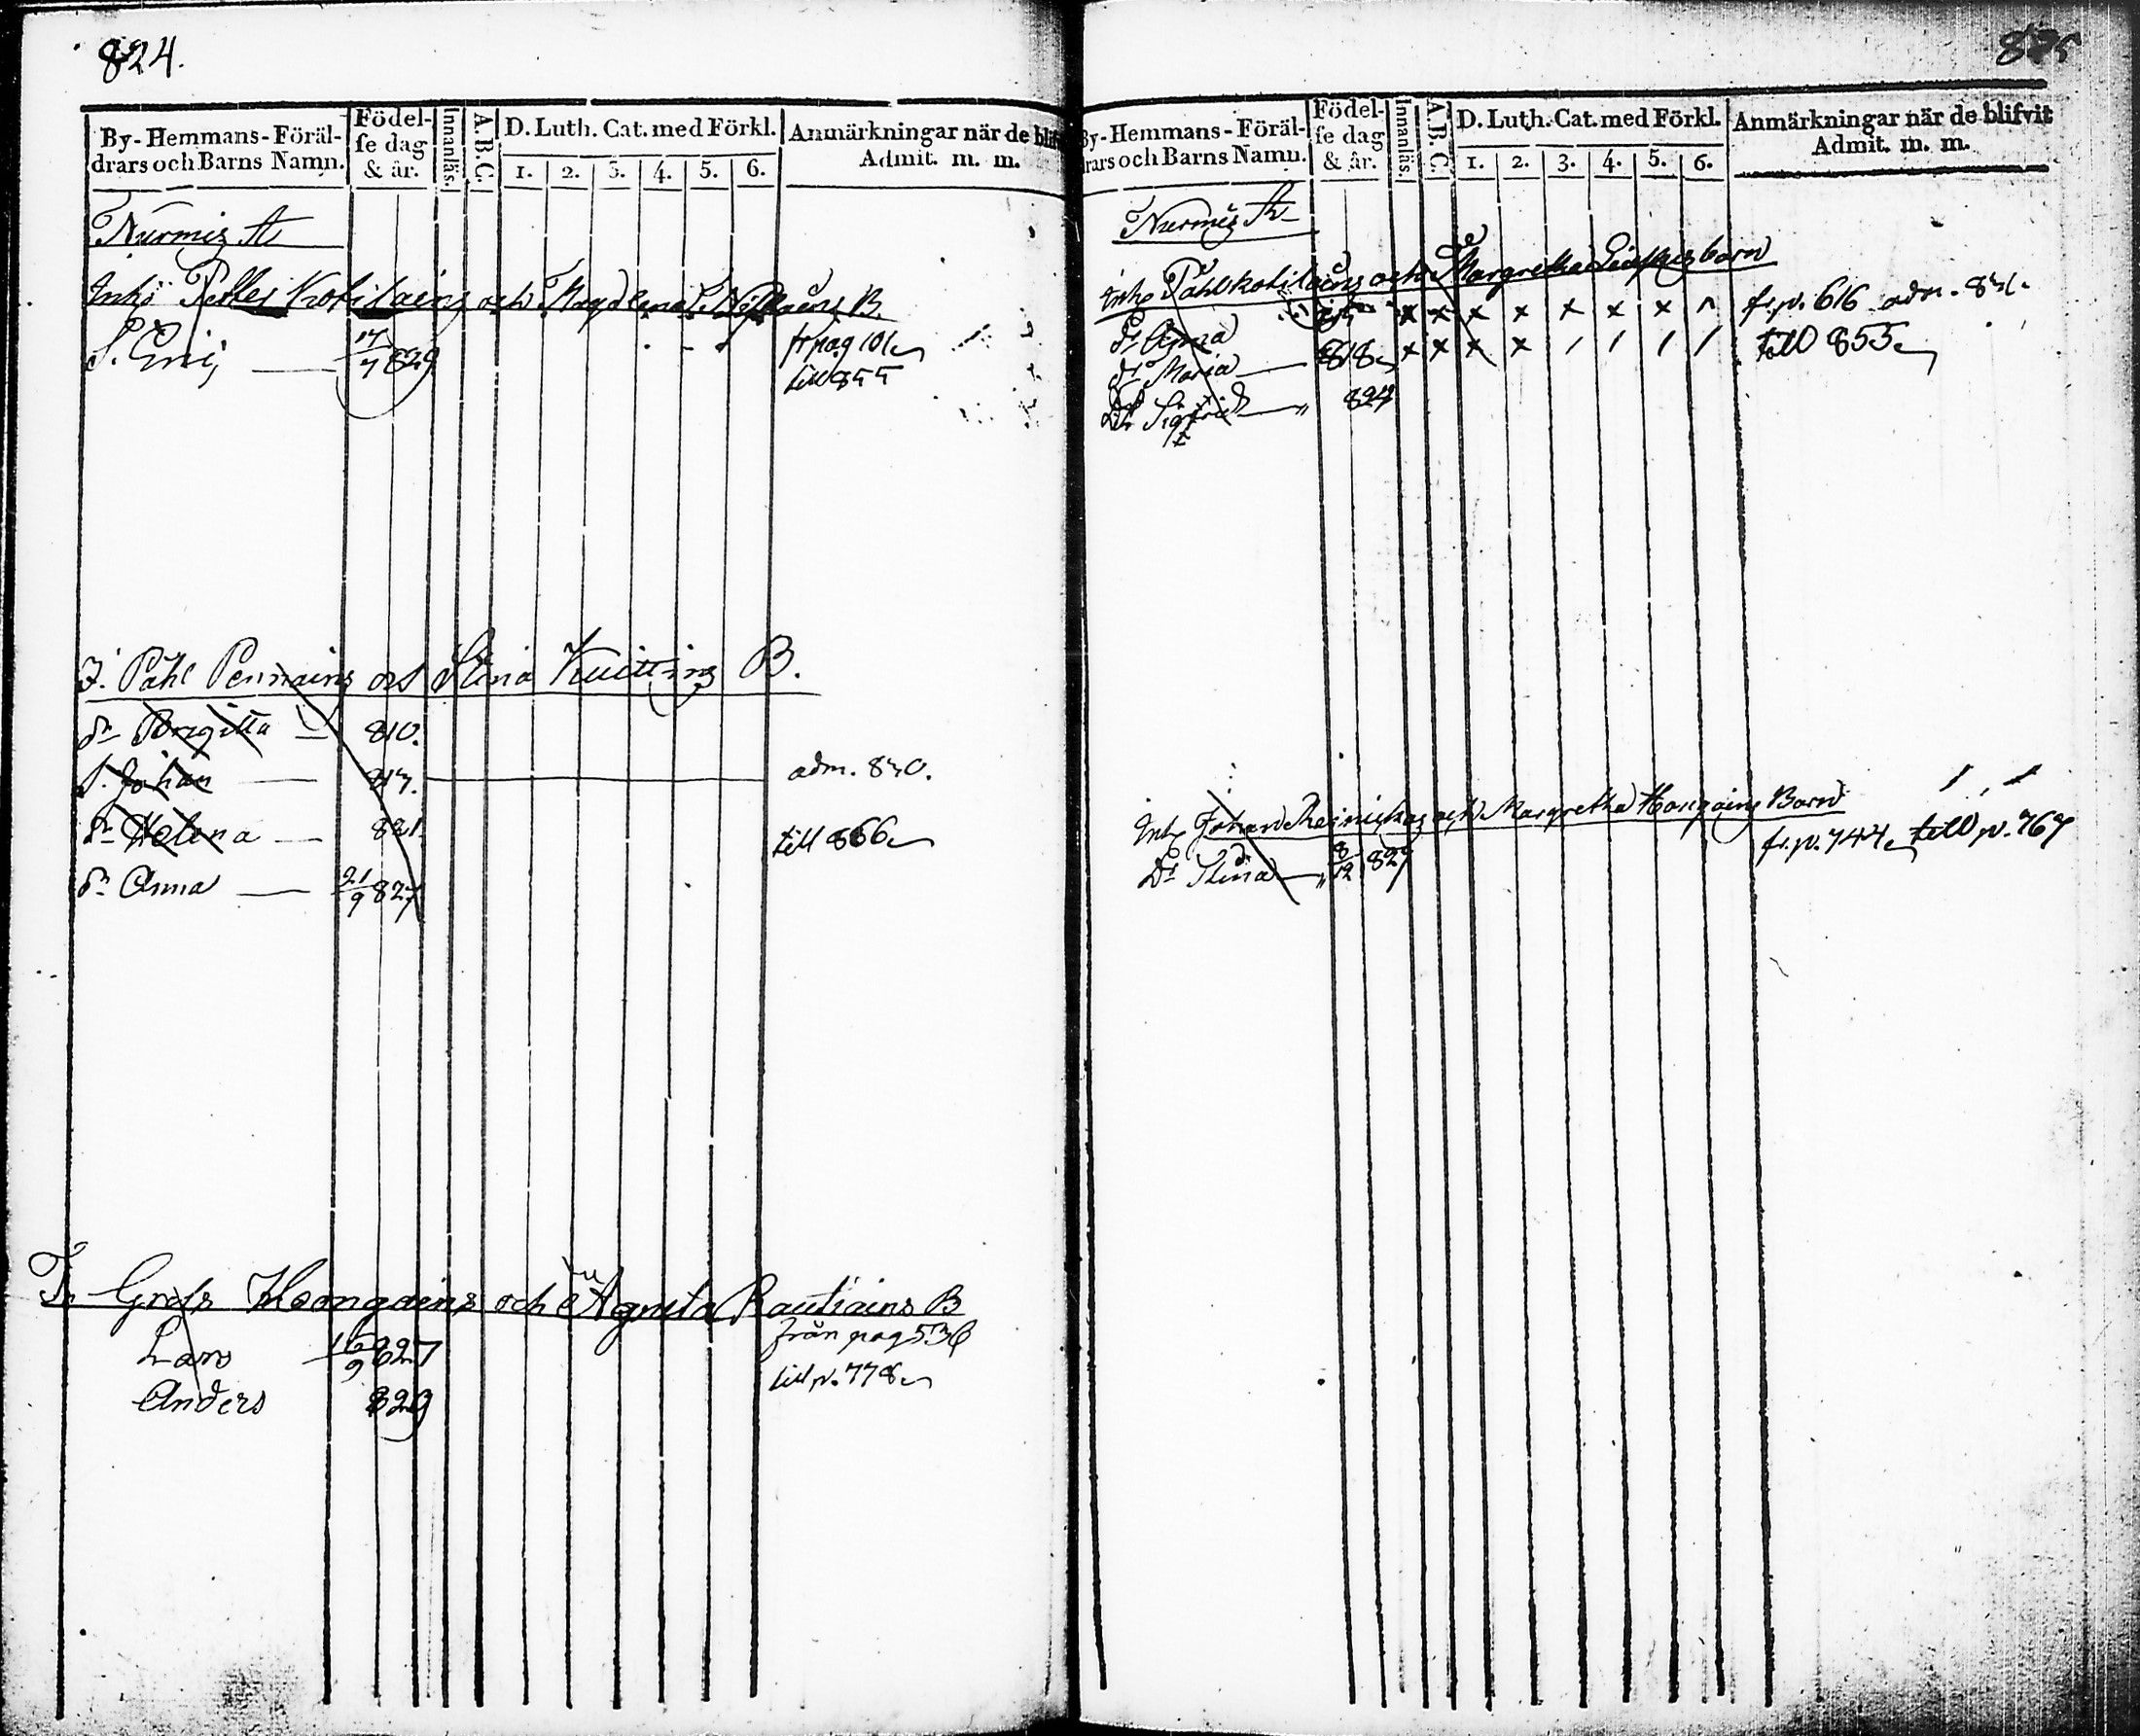 824.
By-Hemmans-Föräl-
drars och Barns Namn.
Födel-
se dag
& år.
Innanläs.
A.B.C.
D. Luth. Cat. med Förkl.
1. 2. 3. 4. 5. 6.
Anmärkningar när de blif
Admit. m. m.
Nurmis
Inhs Petter Kokilains och Magdlena B.
S. Eric 17/7 829 fr pag 101
till 855
J. Påhl Pennains och Stina Kuittins B.
dr Brigitta 810.
S. Johan 817. adm. 830.
dr Helena 821. till 866
dr Anna 21/9 827
Grels Hongains och Agneta Rautiains B
från pag 536
Lars 827
till p. 778
Anders 829
825
By-Hemmans-Föräl-
drars och Barns Namn.
Födel-
se dag
& år.
Innanläs.
A.B.C.
D. Luth. Cat. med Förkl.
1. 2. 3. 4. 5. 6.
Anmärkningar när de blifvit
Admit. m. m.
Nurmis
Inhs Påhl Kokilains och Margretha barn
dr Anna x x x x x x x fr. p. 616 adm. 831.
dr Maria 818 x x x x / / / / till 855
Sigfrid 827
Inhs Johan och Margretha Hongains Barn
fr. p. 744 till p. 767
Dr Stina 8/12 827